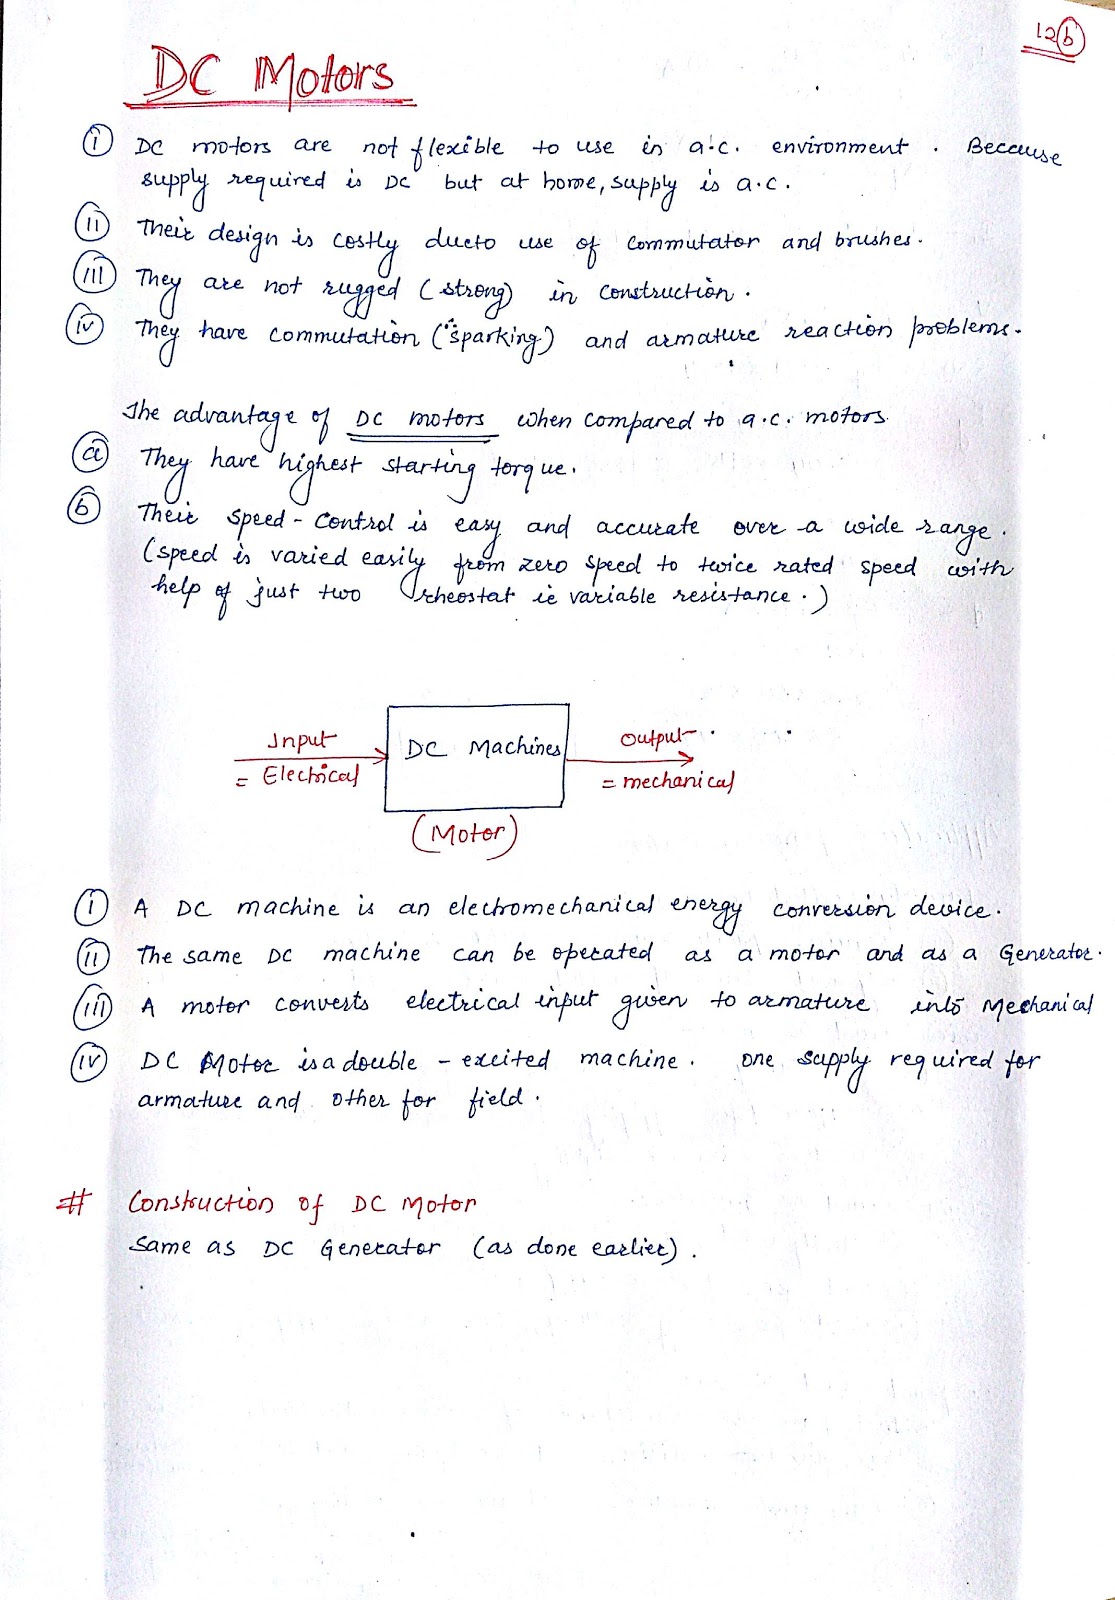 12(b)
DC Motors
(i) DC motors are not flexible to use in a.c. environment. Because
supply required is DC but at home, supply is a.c.
(ii) Their design is costly dueto use of commutator and brushes.
(iii) They are not rugged (strong) in construction.
(iv) They have commutation (sparking) and armature reaction problems.
The advantage of DC motors when compared to a.c. motors.
(a) They have highest starting torque.
(b) Their speed-control is easy and accurate over a wide range.
(speed is varied easily from zero speed to twice rated speed with
help of just two rheostat ie variable resistance.)
Input
= Electrical
DC Machines
Output
= mechanical
(Motor)
(i) A DC machine is an electromechanical energy conversion device.
(ii) The same DC machine can be operated as a motor and as a Generator.
(iii) A motor converts electrical input given to armature into Mechanical
(iv) DC Motor is a double-excited machine. one supply required for
armature and other for field.
# Construction of DC Motor
Same as DC Generator (as done earlier).